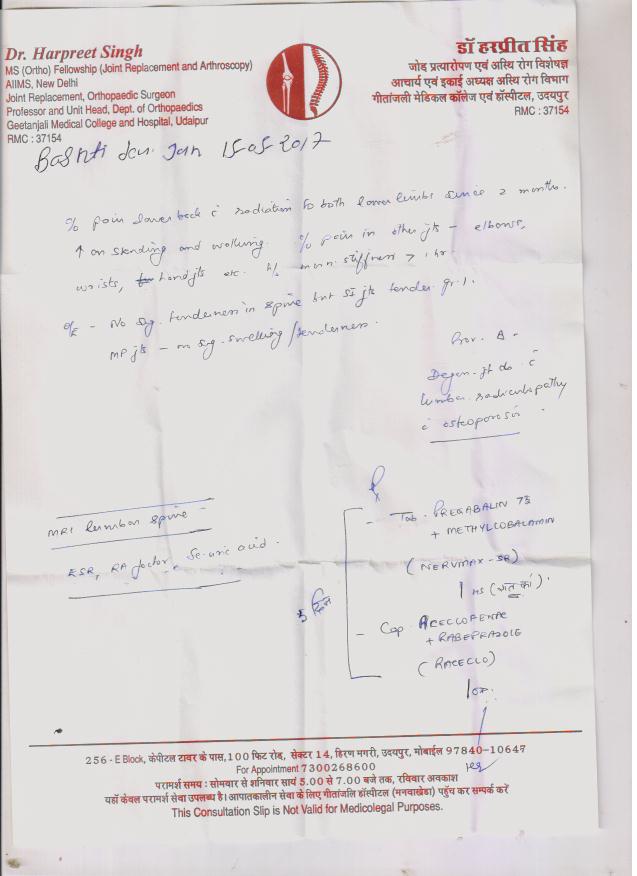 Dr. Harpreet Singh
MS (Ortho) Fellowship (Joint Replacement and Arthroscopy)
AIIMS, New Delhi
Joint Replacement, Orthopaedic Surgeon
Professor and Unit Head, Dept. of Orthopaedics
Geetanjali Medical College and Hospital, Udaipur
RMC : 37154
डॉ हरप्रीत सिंह
जोड प्रत्यारोपण एवं अस्थि रोग विशेषज्ञ
आचार्य एवं इकाई अध्यक्ष अस्थि रोग विभाग
गीतांजली मेडिकल कॉलेज एवं हॉस्पीटल, उदयपुर
RMC : 37154
Jan 15-05-2017
c/o pain lower back c̄ radiation to both lower limbs since 2 months.
↑ on standing and walking. c/o pain in other jts - elbows,
wrists, hand jts etc. h/o morn. stiffness > 1 hr.
o/E - No sig. tenderness in spine but SI jts tender gr. 1.
MP jts - no sig. swelling/tenderness.
Prov. Δ -
Degen. jt ds. c̄
lumbar radiculopathy
c̄ osteoporosis.
MRI lumbar spine -
ESR, RA factor, Se. uric acid.
Rx
- Tab. PREGABALIN 75
+ METHYLCOBALAMIN
(NERVMAX-SR)
1 HS (रात को).
5 दिन
- Cap. ACECLOFENAC
+ RABEPRAZOLE
(RACECLO)
1 OD.
256 - E Block, केपीटल टावर के पास, 100 फिट रोड, सेक्टर 14, हिरण मगरी, उदयपुर, मोबाईल 97840-10647
For Appointment 7300268600
परामर्श समय : सोमवार से शनिवार सायं 5.00 से 7.00 बजे तक, रविवार अवकाश
यहाँ केवल परामर्श सेवा उपलब्ध है। आपातकालीन सेवा के लिए गीतांजलि हॉस्पीटल (मनवाखेडा) पहुँच कर सम्पर्क करें
This Consultation Slip is Not Valid for Medicolegal Purposes.